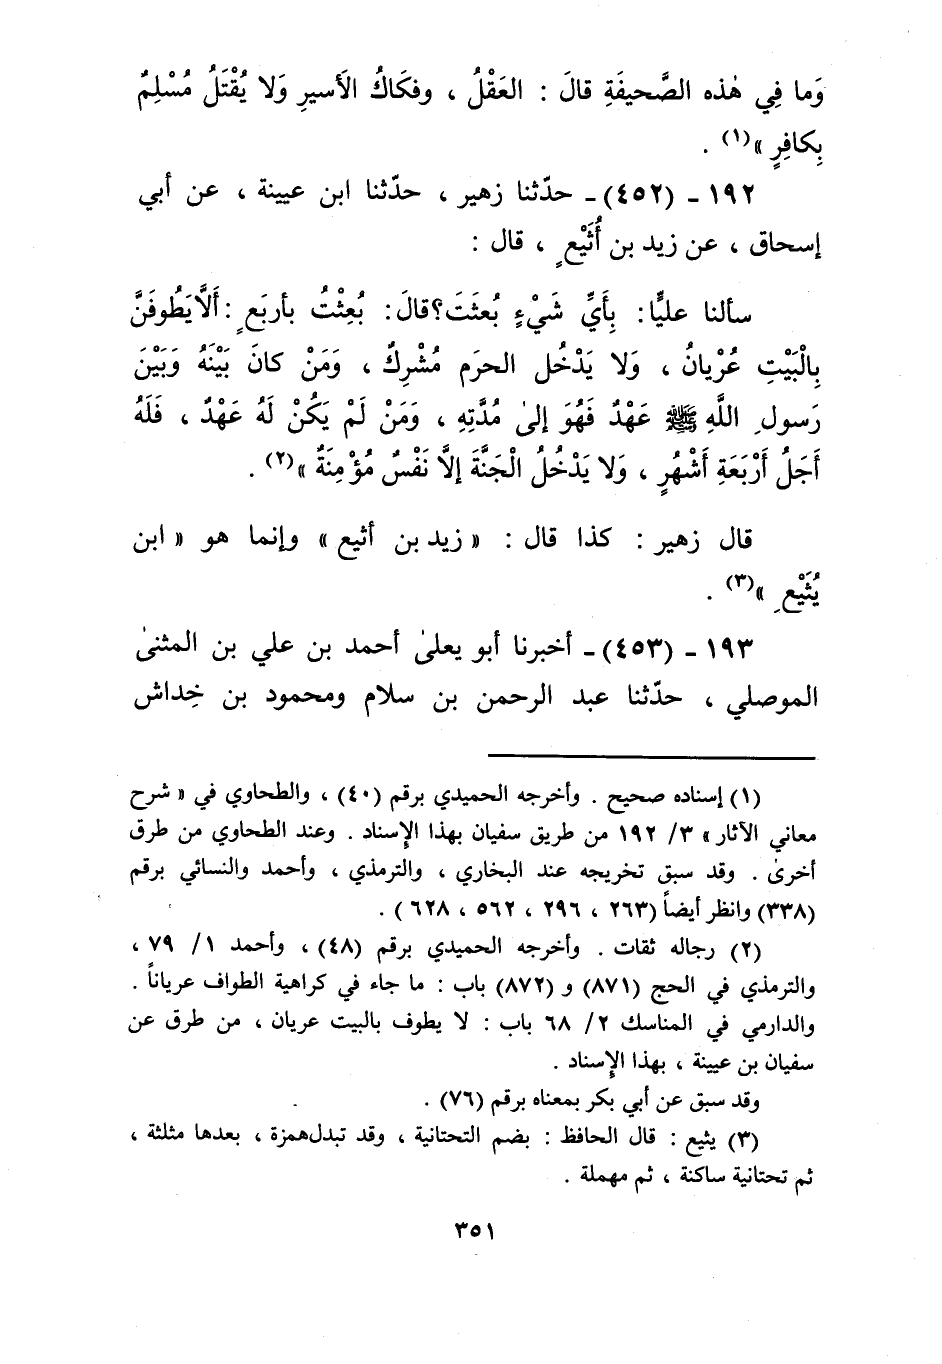 وَما فِي هٰذه الصَّحيفَةِ قالَ : العَقْلُ ، وفكَاكُ الأَسيرِ وَلا يُقْتَلُ مُسْلِمٌ
بِكافِرٍ »(١) .
١٩٢ - (٤٥٢) - حدّثنا زهير ، حدّثنا ابن عيينة ، عن أبي
إسحاق ، عن زيد بن أُثَيْعٍ ، قال :
سألنا عليًّا: بِأَيِّ شَيْءٍ بُعثَتَ؟ قالَ: بُعِثْتُ بأربَعٍ : أَلَّا يَطُوفَنَّ
بِالْبَيْتِ عُرْيانُ ، وَلا يَدْخُل الحرَم مُشْرِكٌ ، وَمَنْ كانَ بَيْنَهُ وَبَيْنَ
رَسولِ اللَّهِ ﷺ عَهْدٌ فَهُوَ إلىٰ مُدَّتِهِ ، وَمَنْ لَمْ يَكُنْ لَهُ عَهْدٌ ، فَلَهُ
أَجَلُ أَرْبَعَةِ أَشْهُرٍ ، وَلا يَدْخُلُ الْجَنَّةَ إلَّا نَفْسٌ مُؤْمِنَةٌ »(٢) .
قال زهير : كذا قال : « زيد بن أثيع » وإنما هو « ابن
يُثَيْعِ »(٣) .
١٩٣ - (٤٥٣) - أخبرنا أبو يعلىٰ أحمد بن علي بن المثنىٰ
الموصلي ، حدّثنا عبد الرحمن بن سلام ومحمود بن خِداش
(١) إسناده صحيح . وأخرجه الحميدي برقم (٤٠) ، والطحاوي في « شرح
معاني الآثار » ٣/ ١٩٢ من طريق سفيان بهذا الإسناد . وعند الطحاوي من طرق
أخرىٰ . وقد سبق تخريجه عند البخاري ، والترمذي ، وأحمد والنسائي برقم
(٣٣٨) وانظر أيضاً (٢٦٣ ، ٢٩٦ ، ٥٦٢ ، ٦٢٨ ) .
(٢) رجاله ثقات . وأخرجه الحميدي برقم (٤٨) ، وأحمد ١/ ٧٩ ،
والترمذي في الحج (٨٧١) و (٨٧٢) باب : ما جاء في كراهية الطواف عرياناً .
والدارمي في المناسك ٢/ ٦٨ باب : لا يطوف بالبيت عريان ، من طرق عن
سفيان بن عيينة ، بهذا الإسناد .
وقد سبق عن أبي بكر بمعناه برقم (٧٦) .
(٣) يثيع : قال الحافظ : بضم التحتانية ، وقد تبدل همزة ، بعدها مثلثة ،
ثم تحتانية ساكنة ، ثم مهملة .
٣٥١